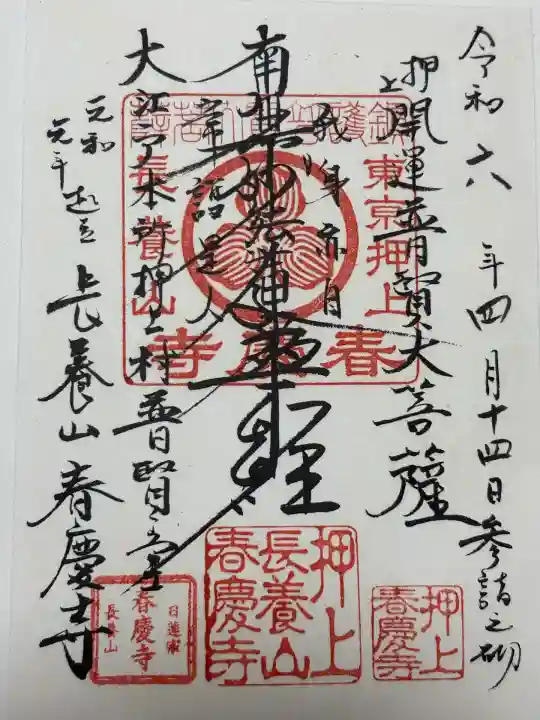 令和六年四月十四日参詣之砌
押上
開運普賢大菩薩
南無妙法蓮華経
大江戸本所押上村普賢堂
元和元年起立
長養山春慶寺
東京押上
長養山
春慶寺
押上
長養山
春慶寺
押上
春慶寺
日蓮宗
春慶寺
長養山